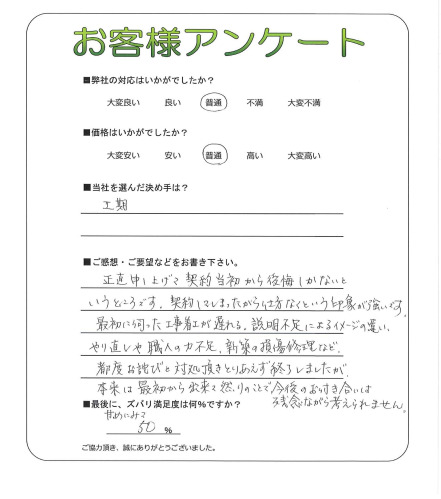 お客様アンケート
■弊社の対応はいかがでしたか？
大変良い 良い 普通 不満 大変不満
■価格はいかがでしたか？
大変安い 安い 普通 高い 大変高い
■当社を選んだ決め手は？
工期
■ご感想・ご要望などをお書き下さい。
正直申し上げて契約当初から後悔しかないと
いうところです。契約してしまったから仕方なくという印象が強いです。
最初に伺った工事着工が遅れる。説明不足によるイメージの違い、
やり直しや職人の力不足、新築の損傷修理など、
都度お詫びと対処頂きとりあえず終了しましたが、
本来は最初から出来て然りのことで今後のお付き合いは
残念ながら考えられません。
■最後に、ズバリ満足度は何％ですか？
甘めにみて
50 ％
ご協力頂き、誠にありがとうございました。